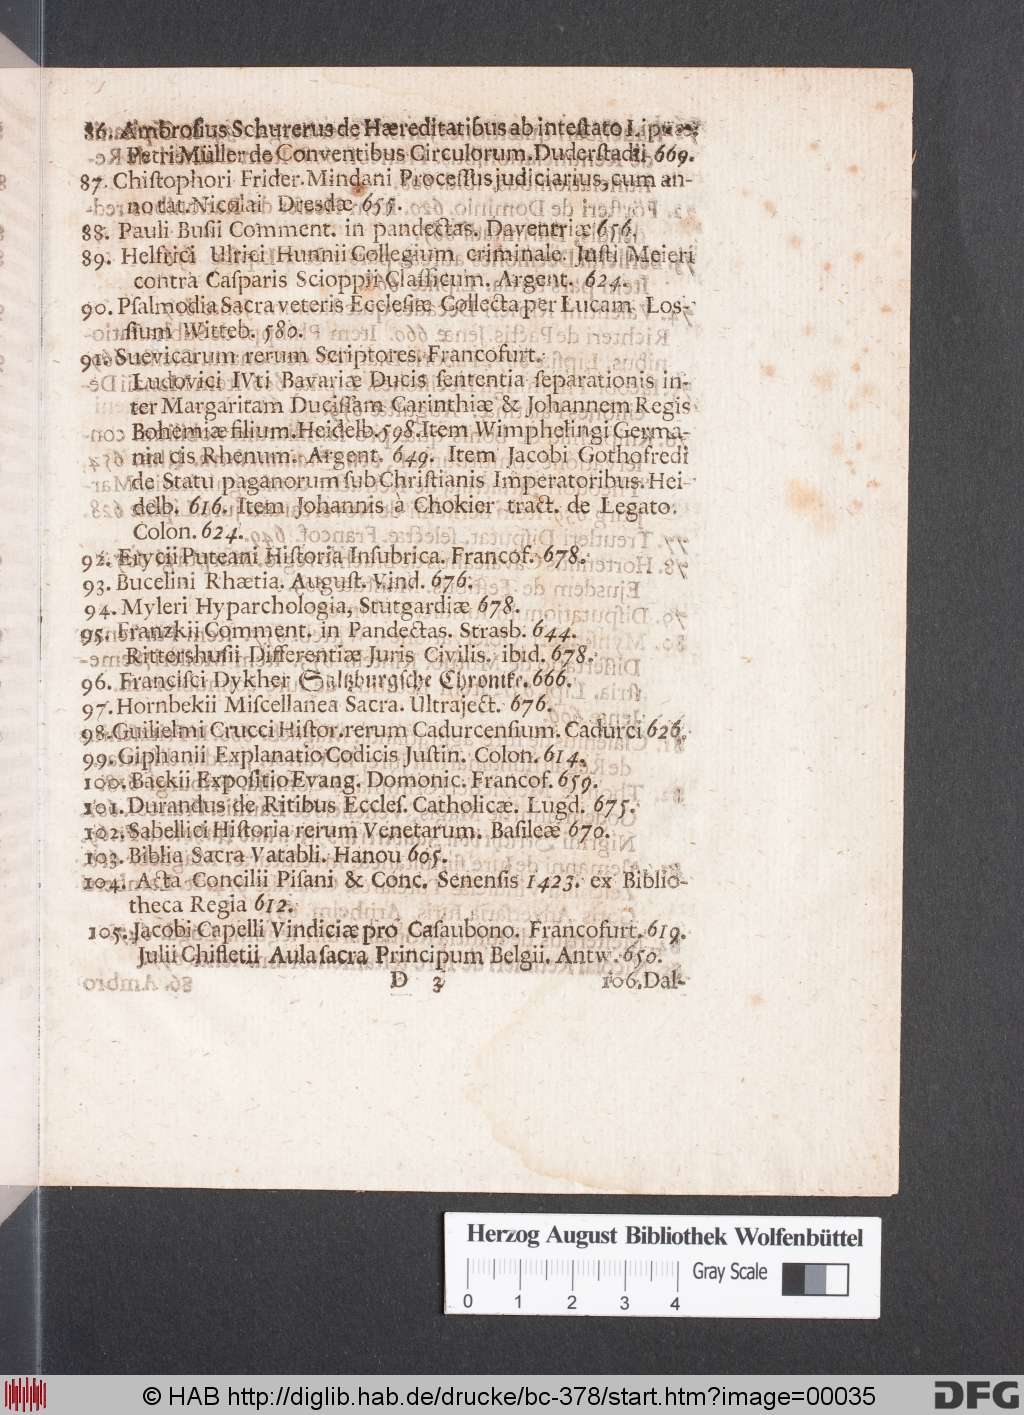 86. Ambrosius Schurerus de Hæreditatibus ab intestato Lips.
Petri Müller de Conventibus Circulorum. Duderstadii 669.
87. Chistophori Frider. Mindani Processus judiciarius, cum an-
notat. Nicolai Dresdæ 655.
88. Pauli Busii Comment. in pandectas. Daventriæ 656.
89. Helfrici Ulrici Hunnii Collegium criminale. Justi Meieri
contra Casparis Scioppii Classicum. Argent. 624.
90. Psalmodia Sacra veteris Ecclesiæ Collecta per Lucam Los-
sium Witteb. 580.
91. Suevicarum rerum Scriptores. Francofurt.
Ludovici IVti Bavariæ Ducis sententia separationis in-
ter Margaritam Ducissam Carinthiæ & Johannem Regis
Bohemiæ filium. Heidelb. 598. Item Wimphelingi Germa-
nia cis Rhenum. Argent. 649. Item Jacobi Gothofredi
de Statu paganorum sub Christianis Imperatoribus. Hei-
delb. 616. Item Johannis à Chokier tract. de Legato.
Colon. 624.
92. Erycii Puteani Historia Insubrica. Francof. 678.
93. Bucelini Rhætia. August. Vind. 676.
94. Myleri Hyparchologia, Stutgardiæ 678.
95. Franzkii Comment. in Pandectas. Strasb. 644.
Rittershusii Differentiæ Juris Civilis. ibid. 678.
96. Francisci Dykher Saltzburgsche Chronike. 666.
97. Hornbekii Miscellanea Sacra. Ultraject. 676.
98. Guilielmi Crucci Histor. rerum Cadurcensium. Cadurci 626.
99. Giphanii Explanatio Codicis Justin. Colon. 614.
100. Backii Expositio Evang. Domonic. Francof. 659.
101. Durandus de Ritibus Eccles. Catholicæ. Lugd. 675.
102. Sabellici Historia rerum Venetarum. Basileæ 670.
103. Biblia Sacra Vatabli. Hanou 605.
104. Acta Concilii Pisani & Conc. Senensis 1423. ex Biblio-
theca Regia 612.
105. Jacobi Capelli Vindiciæ pro Casaubono. Francofurt. 619.
Julii Chifletii Aula sacra Principum Belgii. Antw. 650.
D 3 106. Dal-
Herzog August Bibliothek Wolfenbüttel
Gray Scale
0 1 2 3 4
© HAB http://diglib.hab.de/drucke/bc-378/start.htm?image=00035
DFG